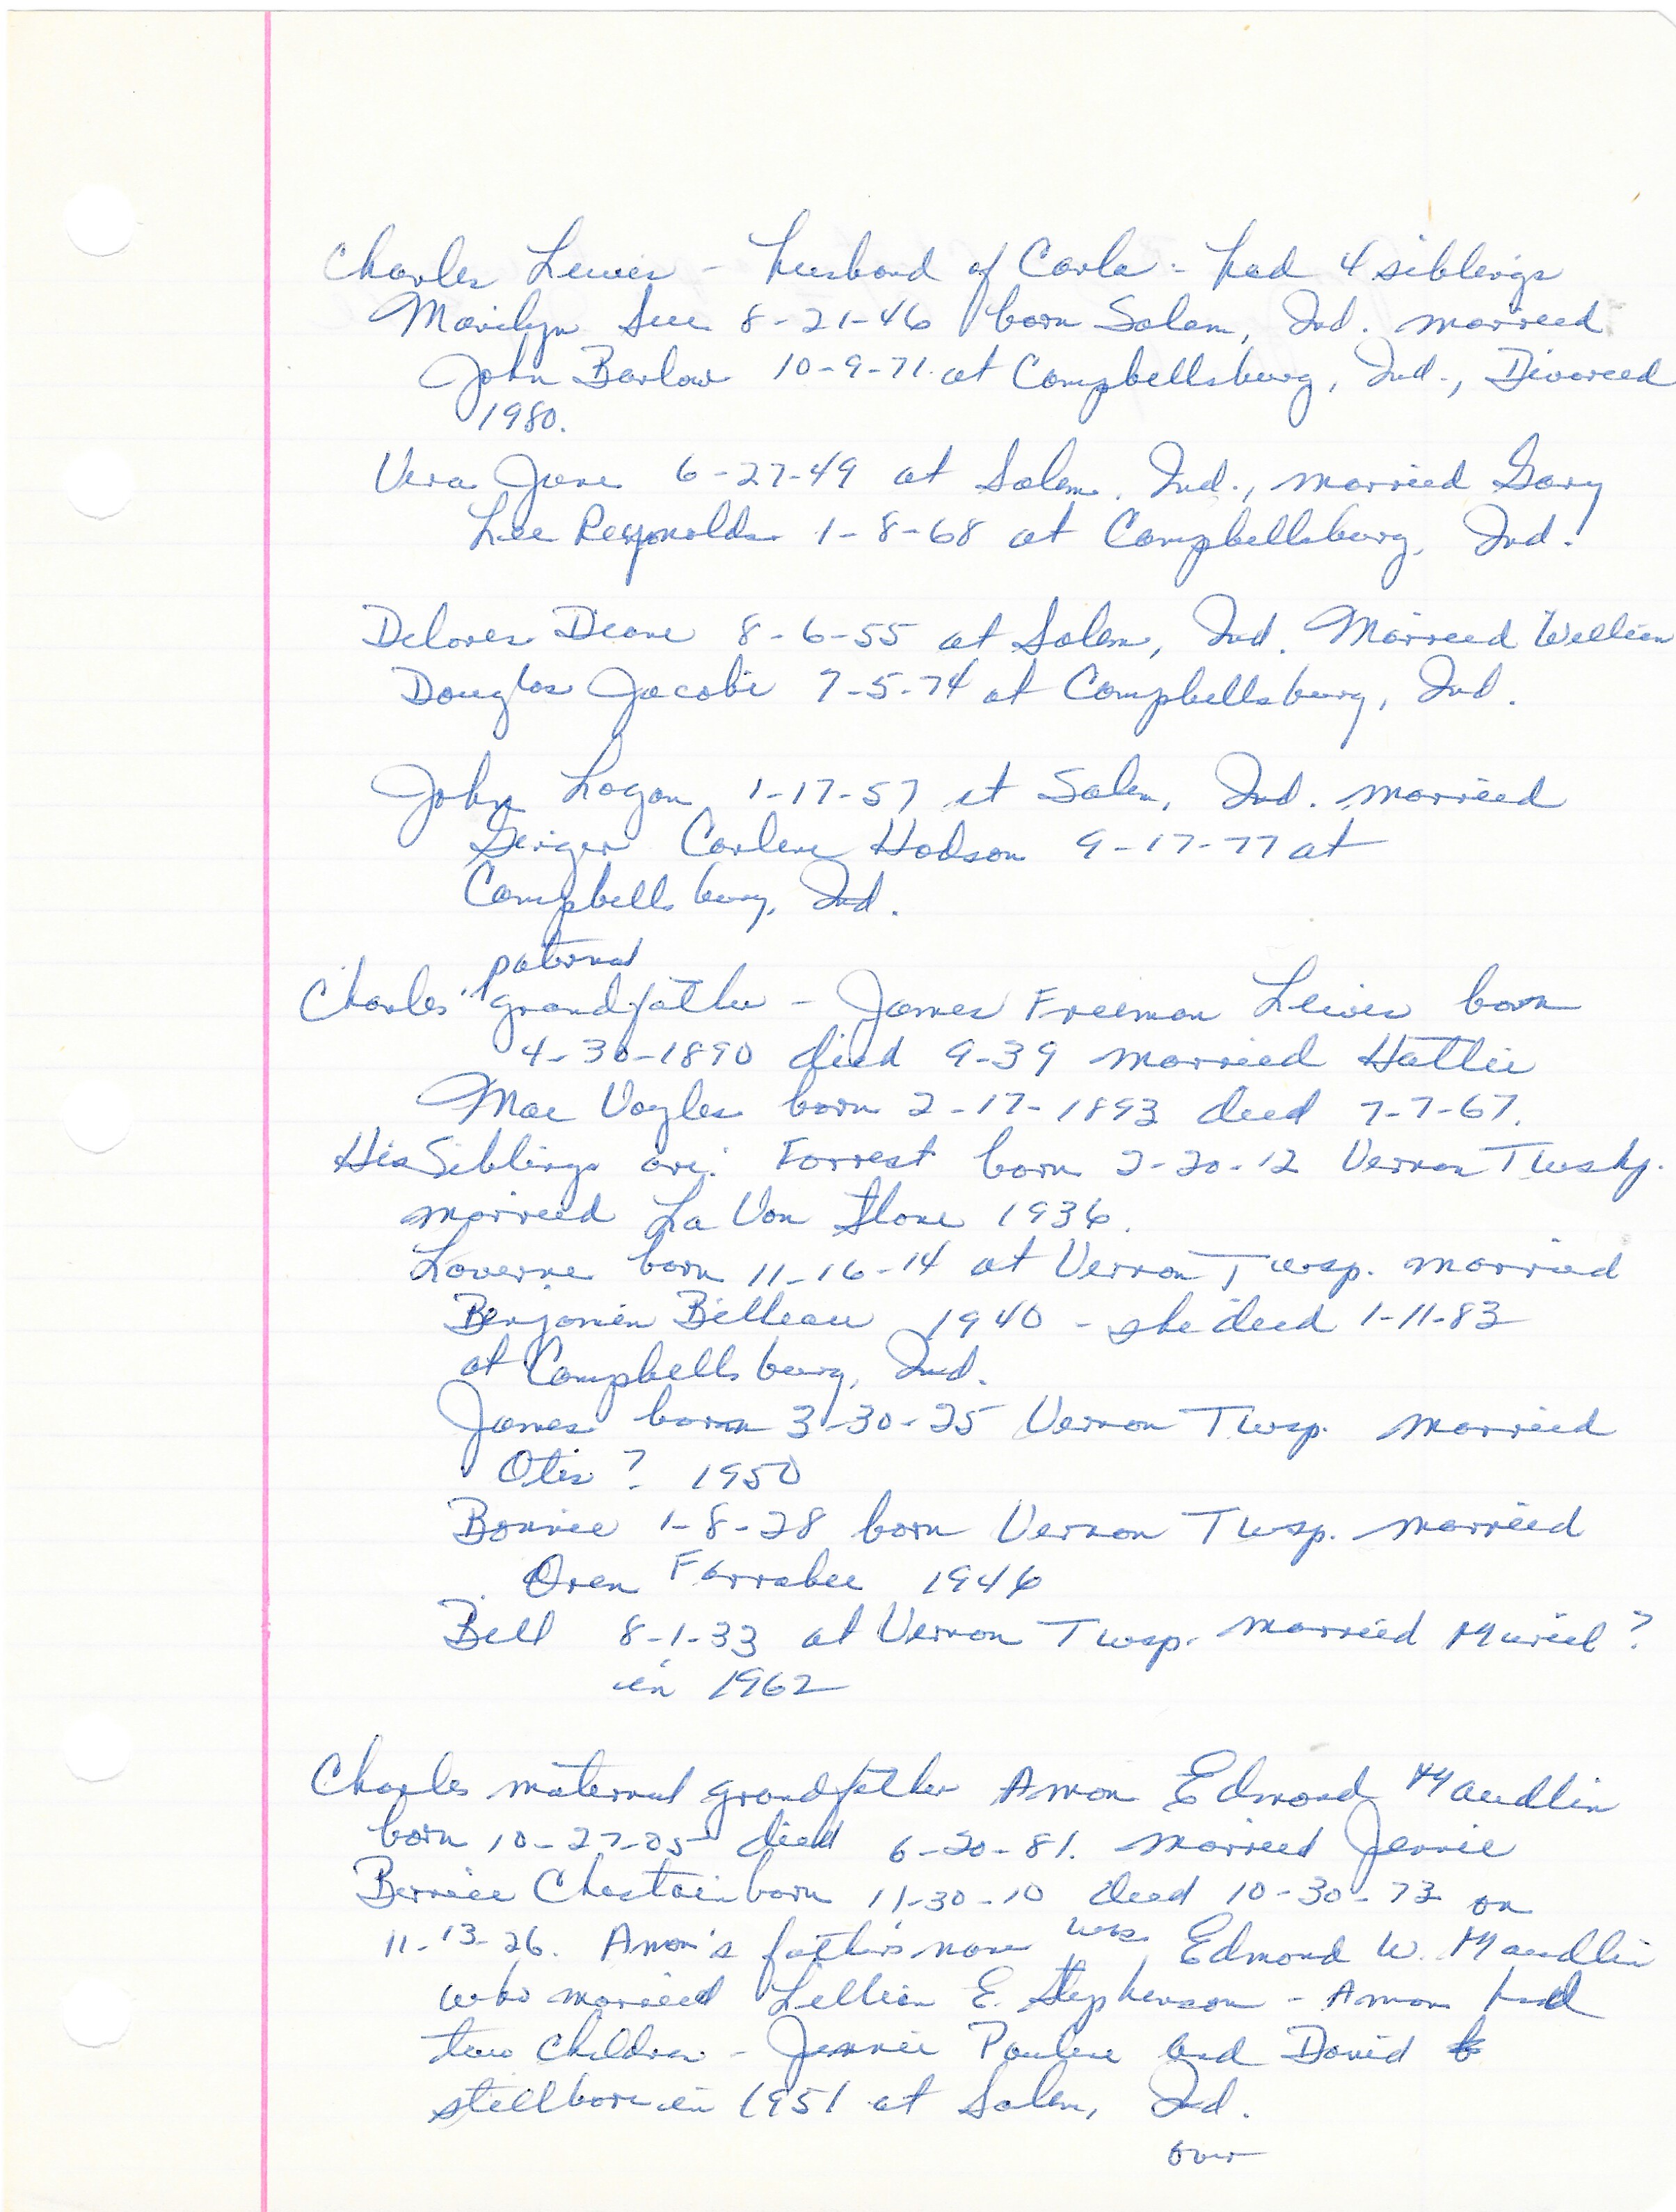 Charles Lewis - husband of Carla - had 4 siblings
Marilyn Sue 8-21-46 born Salem, Ind. married
John Barlow 10-9-71 at Campbellsburg, Ind., Divorced
1980.
Vera June 6-27-49 at Salem, Ind., married Gary
Lee Reynolds 1-8-68 at Campbellsburg, Ind.
Delores Diane 8-6-55 at Salem, Ind. Married William
Douglas Jacobi 7-5-74 at Campbellsburg, Ind.
John Logan 1-17-57 at Salem, Ind. married
Ginger Carlene Hodson 9-17-77 at
Campbellsburg, Ind.
paternal
Charles' grandfather - James Freeman Lewis born
4-30-1890 died 9-39 married Hattie
Mae Voyles born 2-17-1893 died 7-7-67.
His Siblings are: Forrest born 2-20-12 Vernon Twshp.
married La Von Stone 1936.
Laverne born 11-16-14 at Vernon Twsp. married
Benjamin Billeau 1940 - she died 1-11-83
at Campbellsburg, Ind.
James born 3-30-25 Vernon Twsp. married
Otis ? 1950
Bonnie 1-8-28 born Vernon Twsp. married
Oren Farrabee 1946
Bill 8-1-33 at Vernon Twsp. married Muriel ?
in 1962
Charles maternal grandfather Amon Edmond Maudlin
born 10-27-05 died 6-20-81. married Jennie
Bernice Chastain born 11-30-10 died 10-30-73 on
11-13-26. Amon's father's name was Edmond W. Maudlin
who married Lillian E. Stephenson - Amon had
two children - Jennie Pauline and David
stillborn in 1951 at Salem, Ind.
over